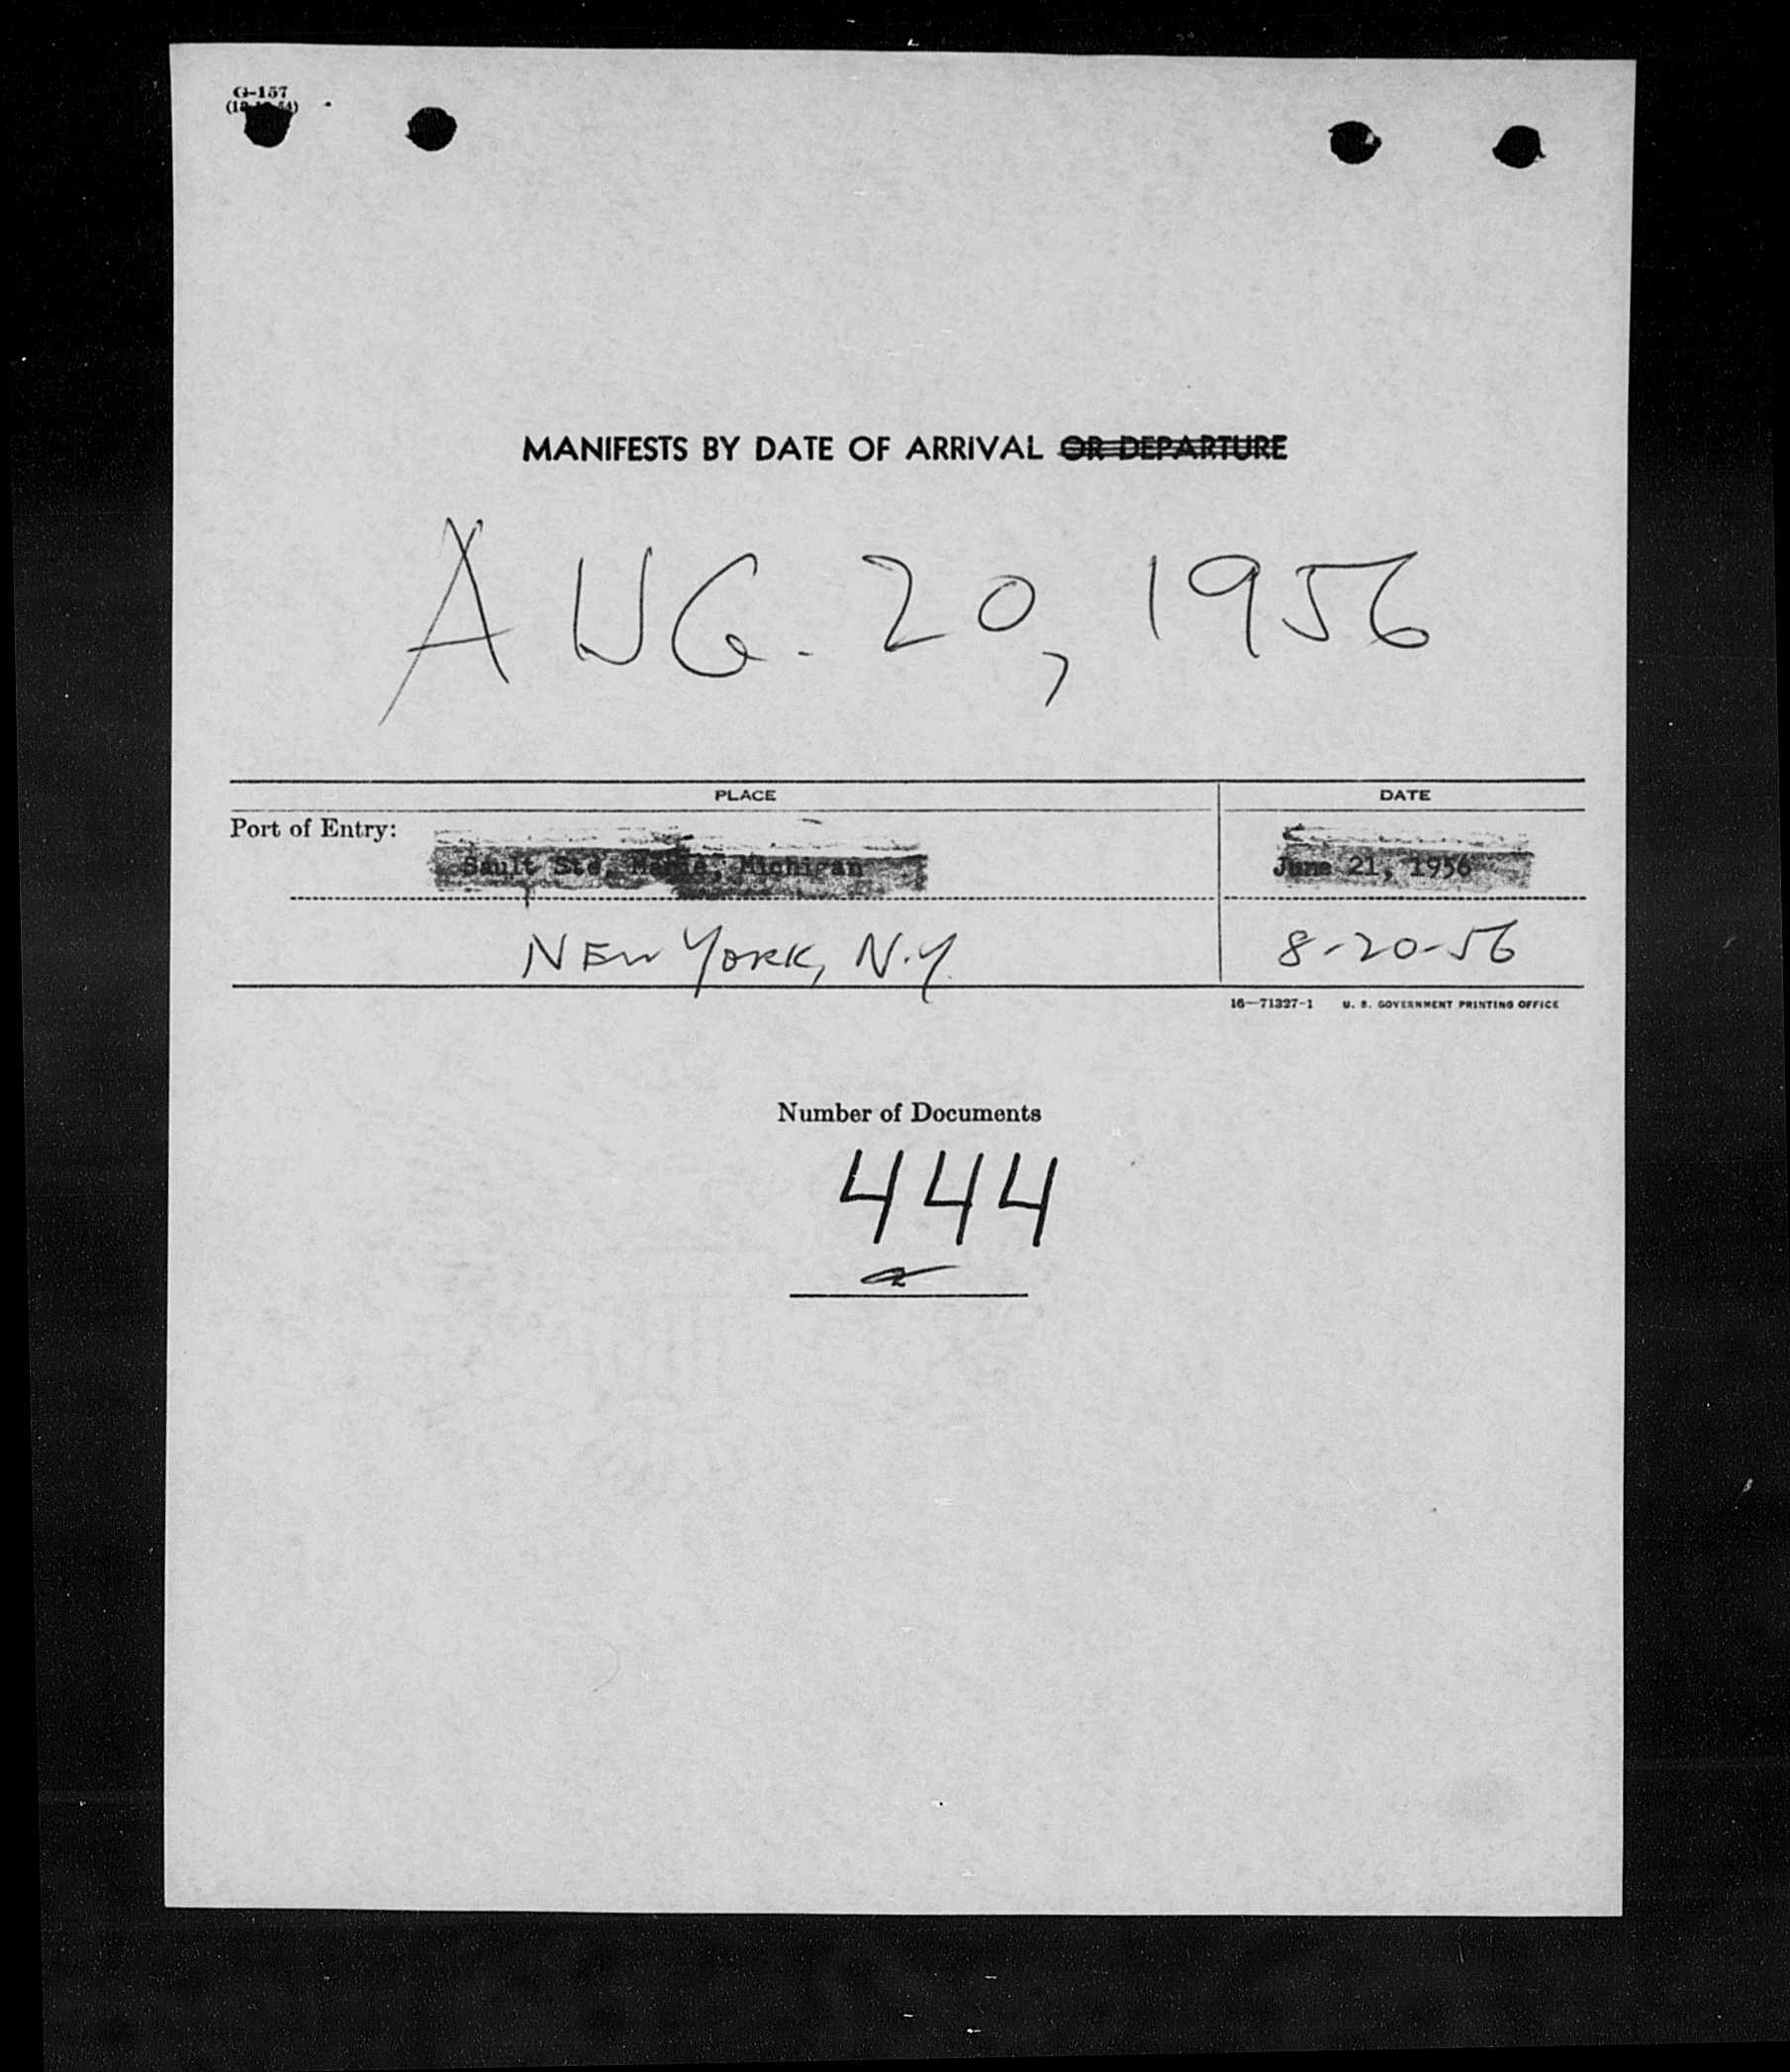 G-157
MANIFESTS BY DATE OF ARRIVAL OR DEPARTURE
AUG. 20, 1956
PLACE DATE
Port of Entry:
Sault Ste. Marie, Michigan June 21, 1956
NEW YORK, N.Y. 8-20-56
16—71327-1 U. S. GOVERNMENT PRINTING OFFICE
Number of Documents
444